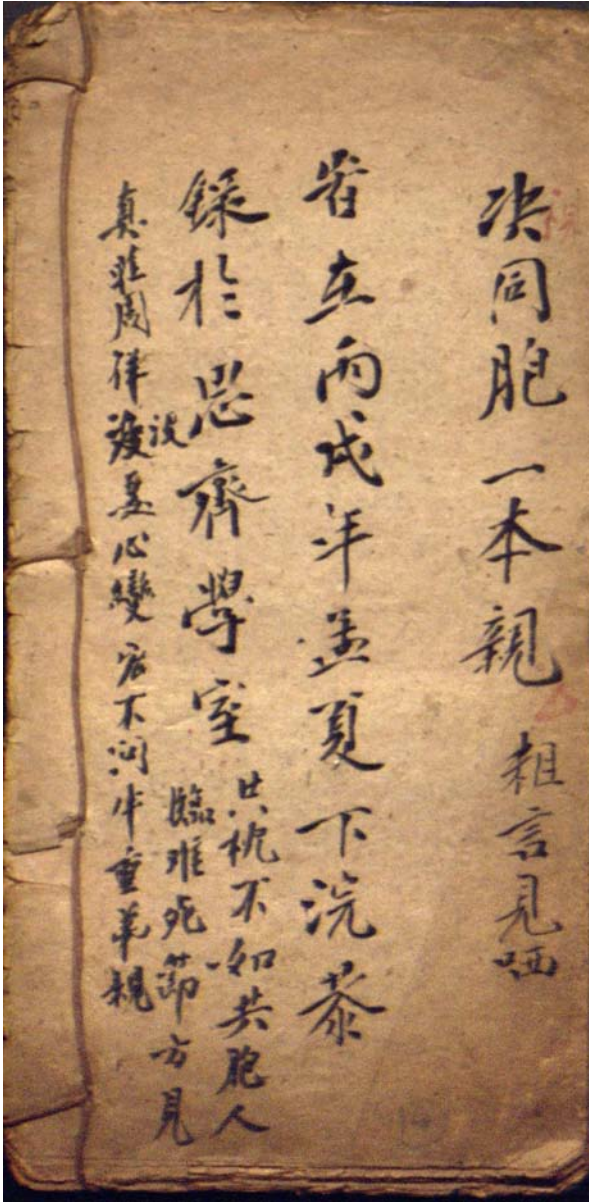 决同胞一本親 粗言見哂
旹在丙戌年孟夏下浣恭
錄於思齊學室
共枕不如共胞人
臨难死節方見
真莊周律没心變 不問牛重羊親